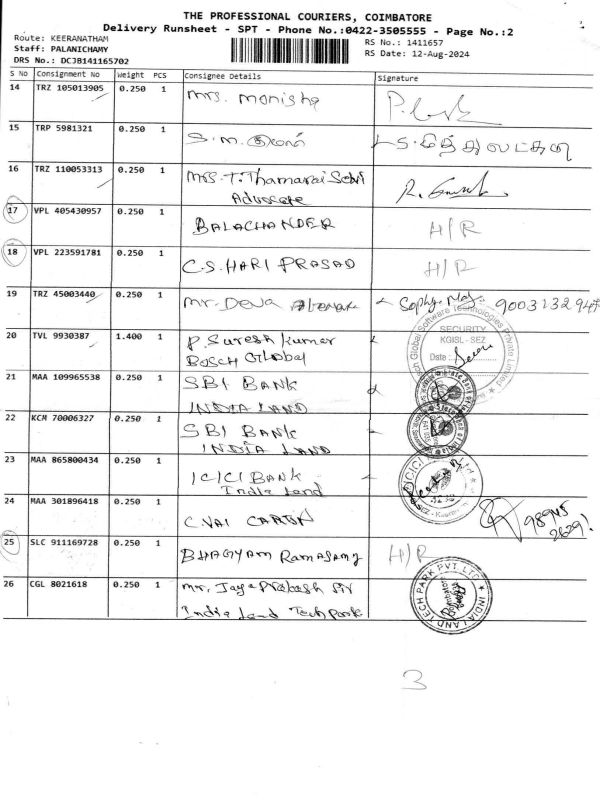 THE PROFESSIONAL COURIERS, COIMBATORE
Delivery Runsheet - SPT - Phone No.:0422-3505555 - Page No.:2
Route: KEERANATHAM
RS No.: 1411657
Staff: PALANICHAMY
RS Date: 12-Aug-2024
DRS No.: DCJB141165702
S No Consignment No Weight PCS Consignee Details Signature
14 TRZ 105013905 0.250 1 Mrs. Monisha
15 TRP 5981321 0.250 1 S.M.
16 TRZ 110053313 0.250 1 Mrs. T. Thamarai Selvi
Advocate
17 VPL 405430957 0.250 1 BALACHANDER H/R
18 VPL 223591781 0.250 1 C.S. HARI PRASAD H/R
19 TRZ 45003440 0.250 1 Mr. Deva
20 TVL 9930387 1.400 1 P. Suresh Kumar
BOSCH Global
SECURITY
KGISL - SEZ
Date :
21 MAA 109965538 0.250 1 SBI BANK
INDIA LAND
22 KCM 70006327 0.250 1 SBI BANK
INDIA LAND
23 MAA 865800434 0.250 1 ICICI BANK
India Land
ICICI
24 MAA 301896418 0.250 1
25 SLC 911169728 0.250 1 BHAGYAM Ramasamy H/R
26 CGL 8021618 0.250 1 Mr. Jaya Prakash Sir
India Land Tech Park
INDIA LAND TECH PARK PVT. LTD
3